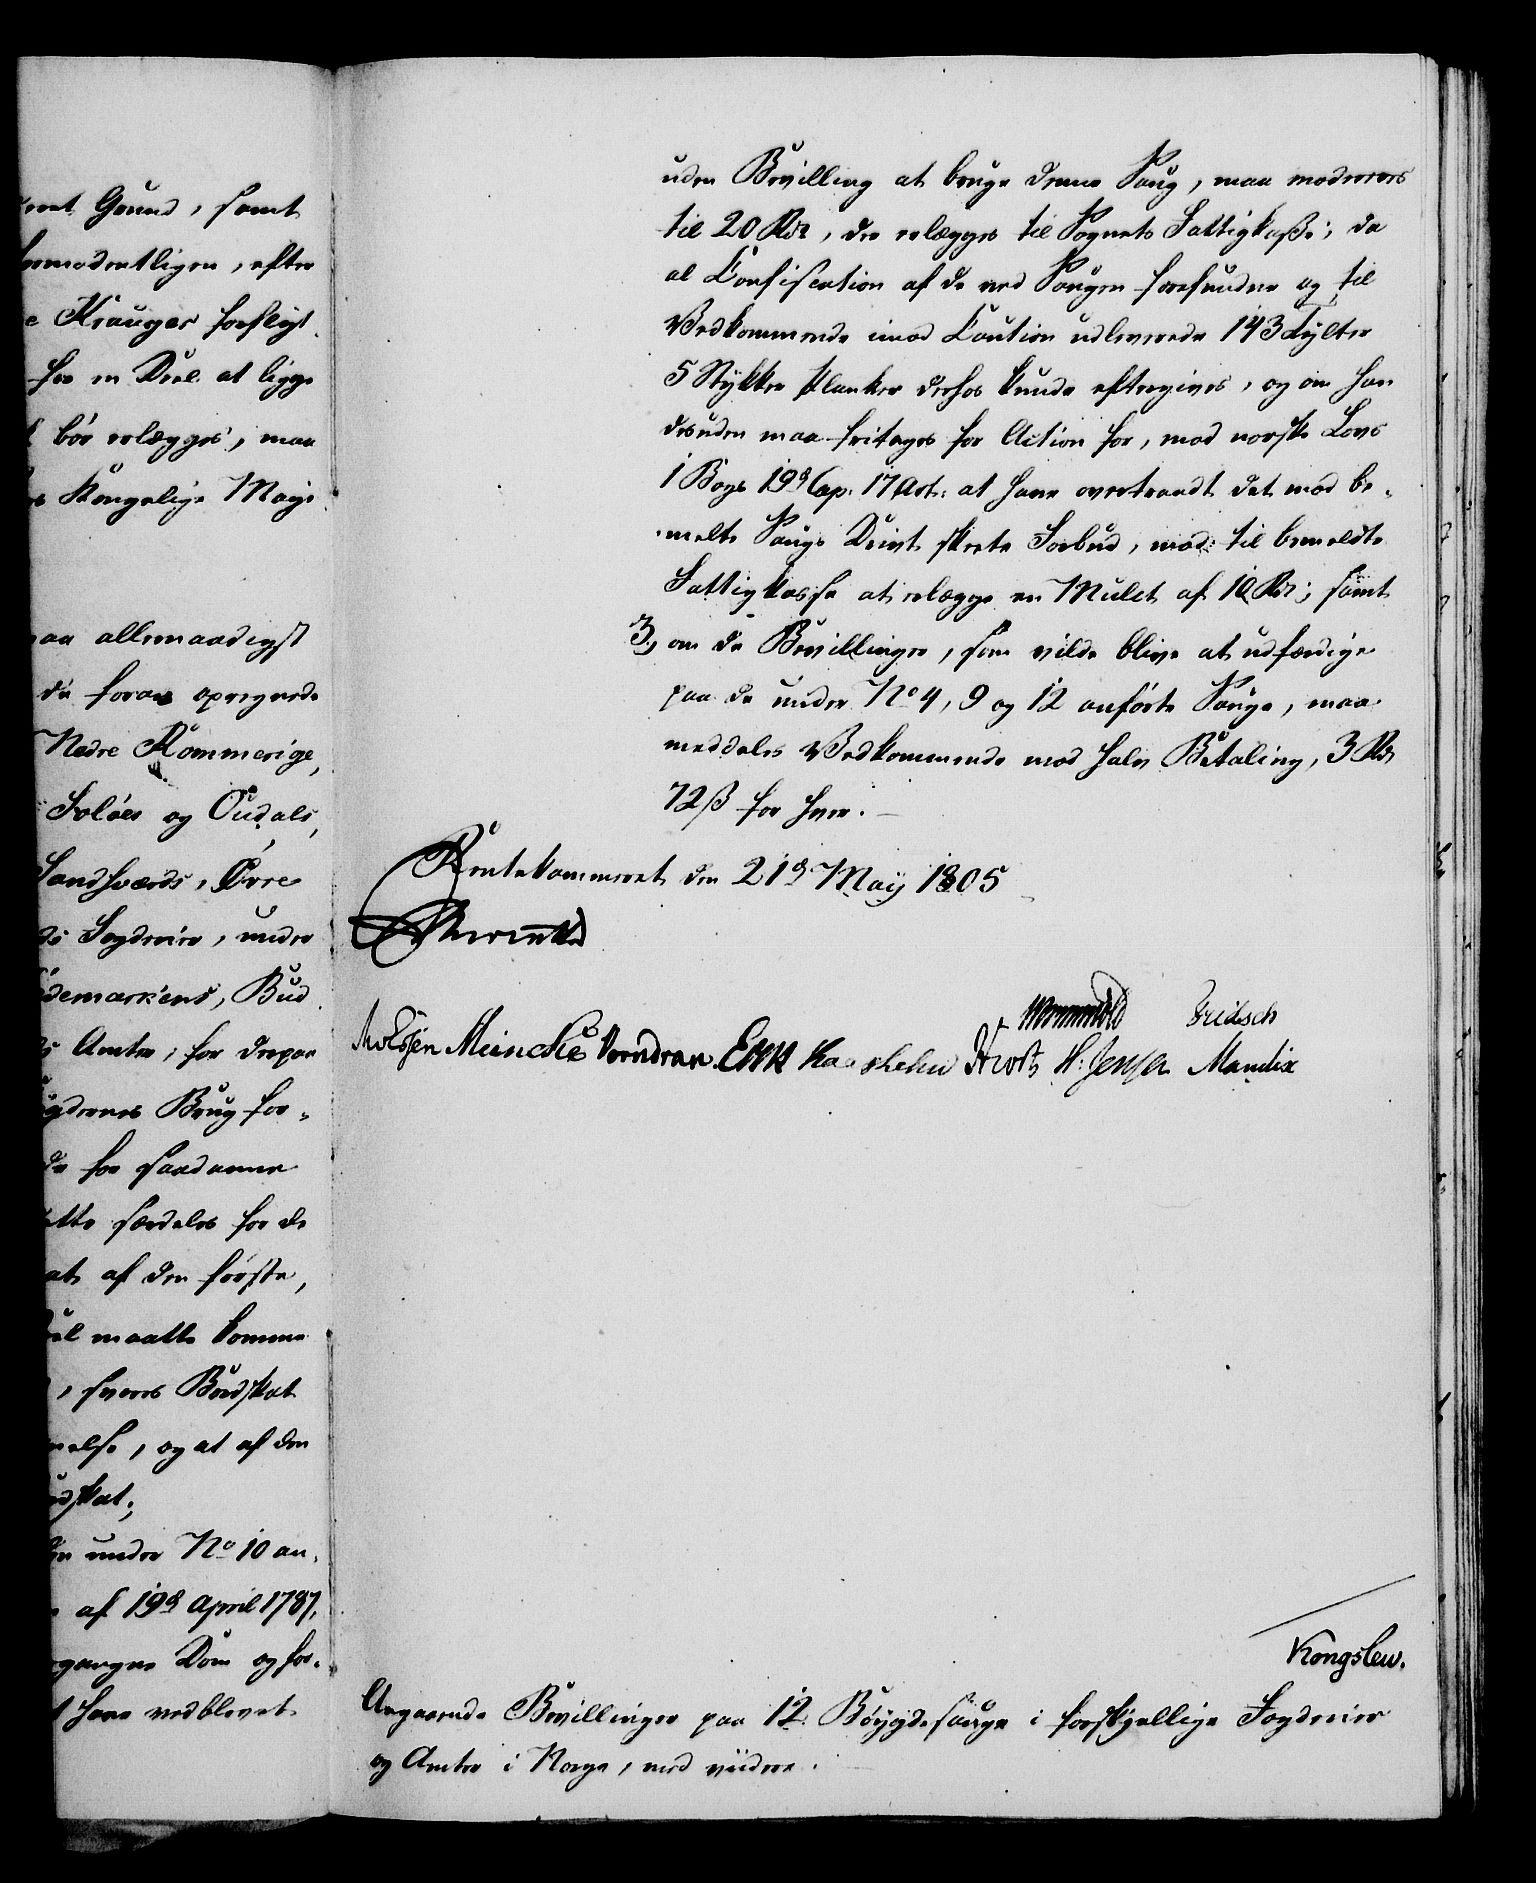 eret Grund, samt
formodentligen, efter
e Krauger forfligt
for en Deel at ligge
bör erlægges, maa
Kongelige Maje
maa allernaadigst
de foran opregnede
Nedre Rommerige,
Soløer og Oudals,
Sandsværds, Øvre
Fogderier, under
demarkens, Bud
Amter, for derpaa
Bygdernes Brug for-
de for saadanne
ette særdeles for de
at af den første,
deel maatte komme
, svares Bordskat
else, og at af den
dskat;
den under No 10 an-
af 19de April 1787,
gangne Dom og for-
have vedblevet
uden Bevilling at bruge denne Saug, maa modereres
til 20 Rdr, der erlægges til Sognets Fattigkasse; da
al Confiscation af de ved Saugen forefundne og til
Vedkommende imod Caution udleverede 143 Tylter
5 Stykker Planker derhos kunde eftergives, og om han
desuden maa fritages for Action for, mod norske Lovs
1 Bogs 19de Cap: 17 Art: at have overtraadt det mod be-
-melte Saugs Drivt skeete Forbud, mod til bemeldte
Fattigkasse at erlægge en Mulct af 10 Rdr; samt
3, om de Bevillinger, som vilde blive at udfærdige
paa de under No 4, 9 og 12 anførte Sauge, maa
meddeles Vedkommende mod halv Betaling, 3 Rdr
72 ß for hver.
Rentekammeret den 21de May 1805
Wormskiold Fridsch
Meincke Vorndran Kaasbehn Hvort H: Jensen Mandix
Kongslew.
Angaaende Bevillinger paa 12 Böygdesauge i forskjellige Fogderier
og Amter i Norge, med viidere.